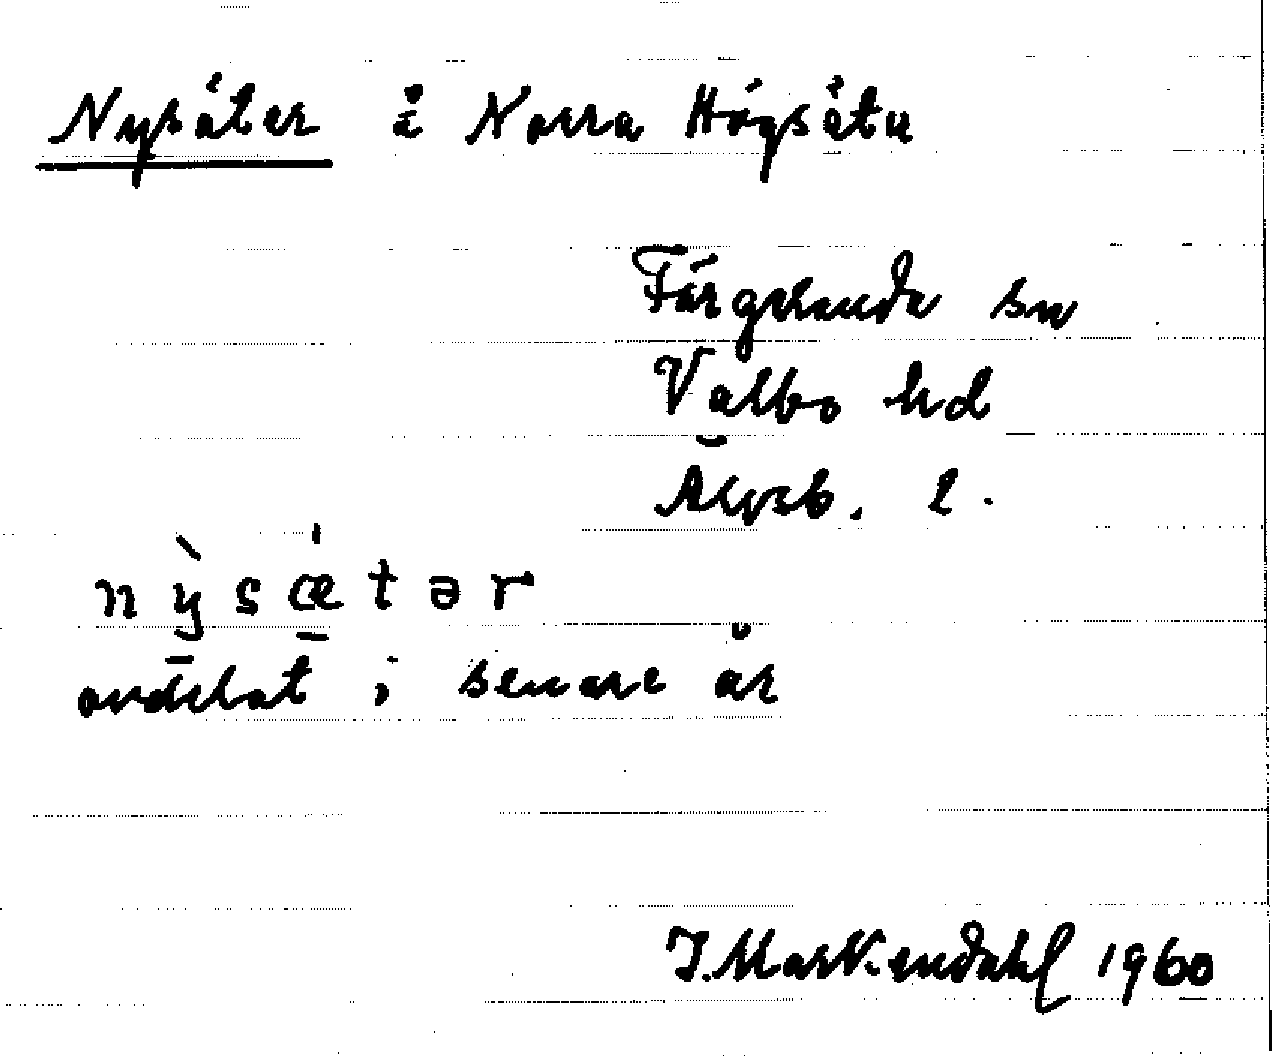 Nysäter i Norra Högsäter
Färgelanda sn
Valbo hd
Älvsb. l.
nỳsǽtər
avdelat i senare år
I. Markendahl 1960